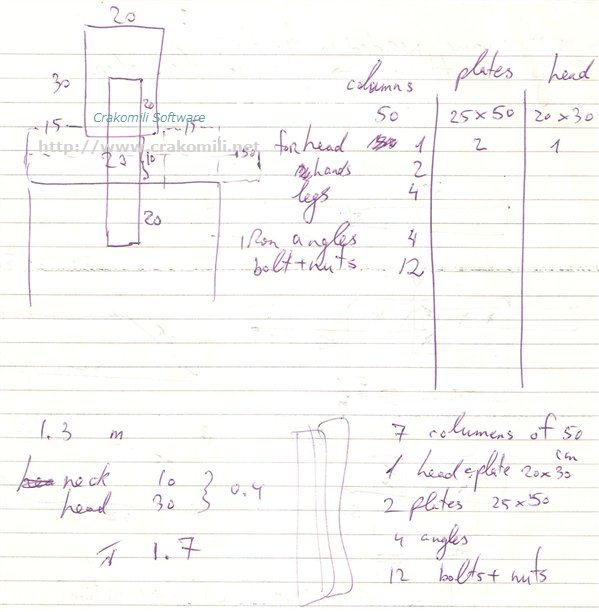 20
30
20
Crakomili Software
15
15
http://www.crakomili.net
10
50
20
columns plates head
50 25×50 20×30
for head 1 2 1
hands 2
legs 4
iron angles 4
bolt+nuts 12
1.3 m
neck 10
head 30
} 0.4
1.7
7 columens of 50
1 head plate 20×30 cm
2 plates 25×50
4 angles
12 bolts + nuts